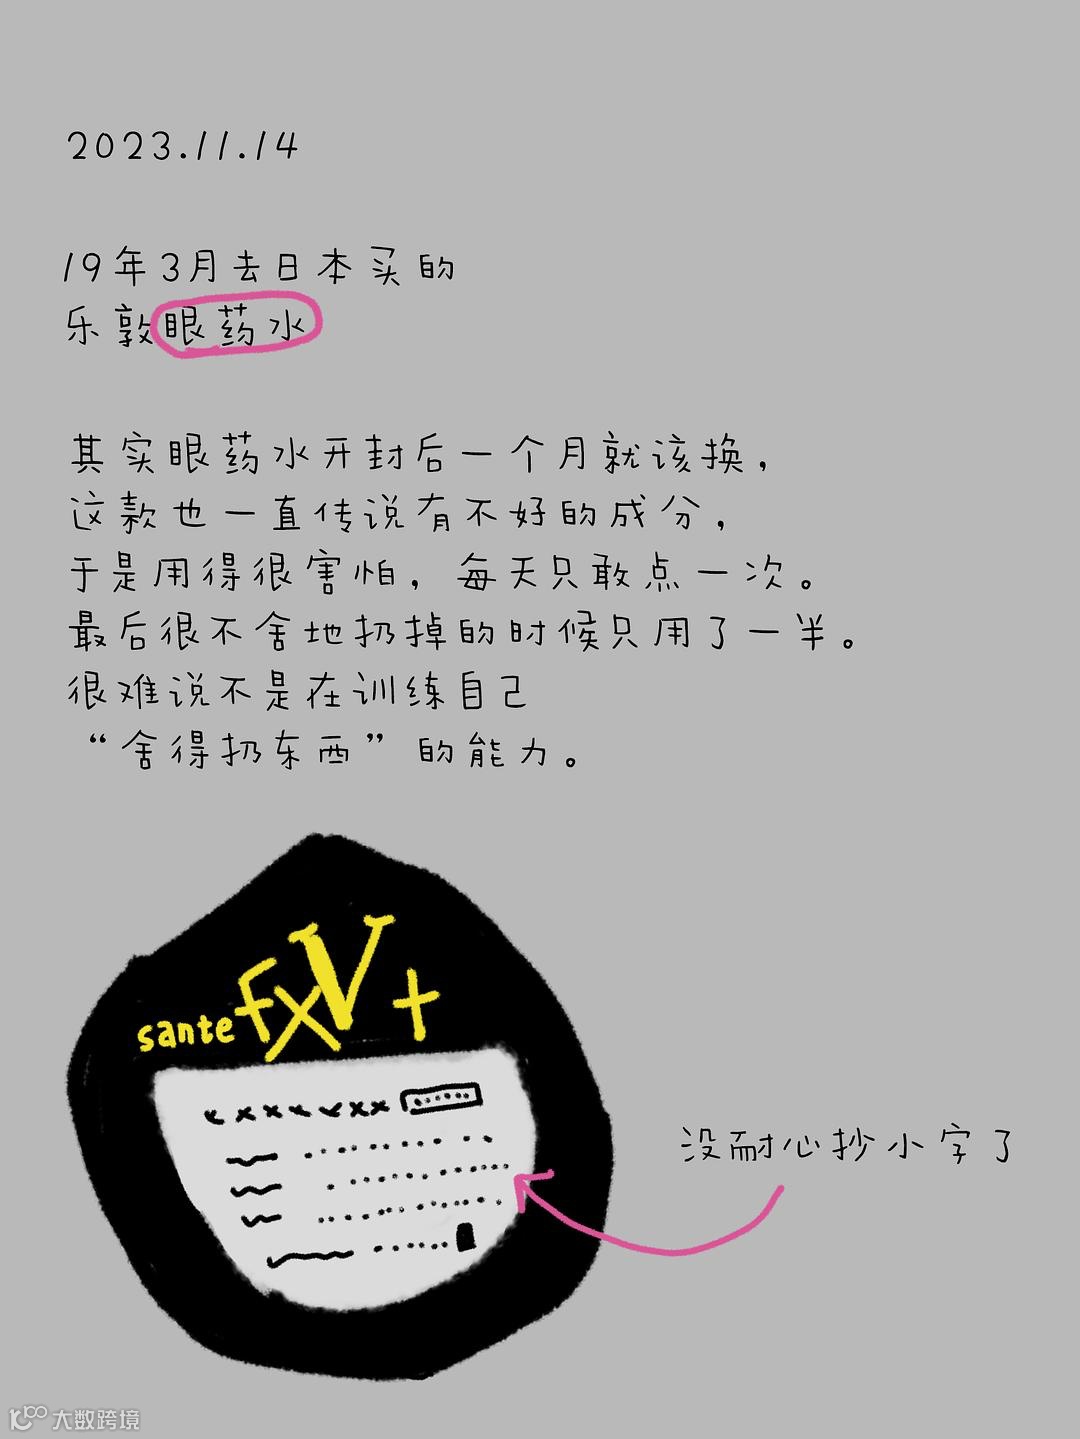 2023.11.14
19年3月去日本买的
乐敦眼药水
其实眼药水开封后一个月就该换，
这款也一直传说有不好的成分，
于是用得很害怕，每天只敢点一次。
最后很不舍地扔掉的时候只用了一半。
很难说不是在训练自己
“舍得扔东西”的能力。
sante FXV+
没耐心抄小字了
大数跨境